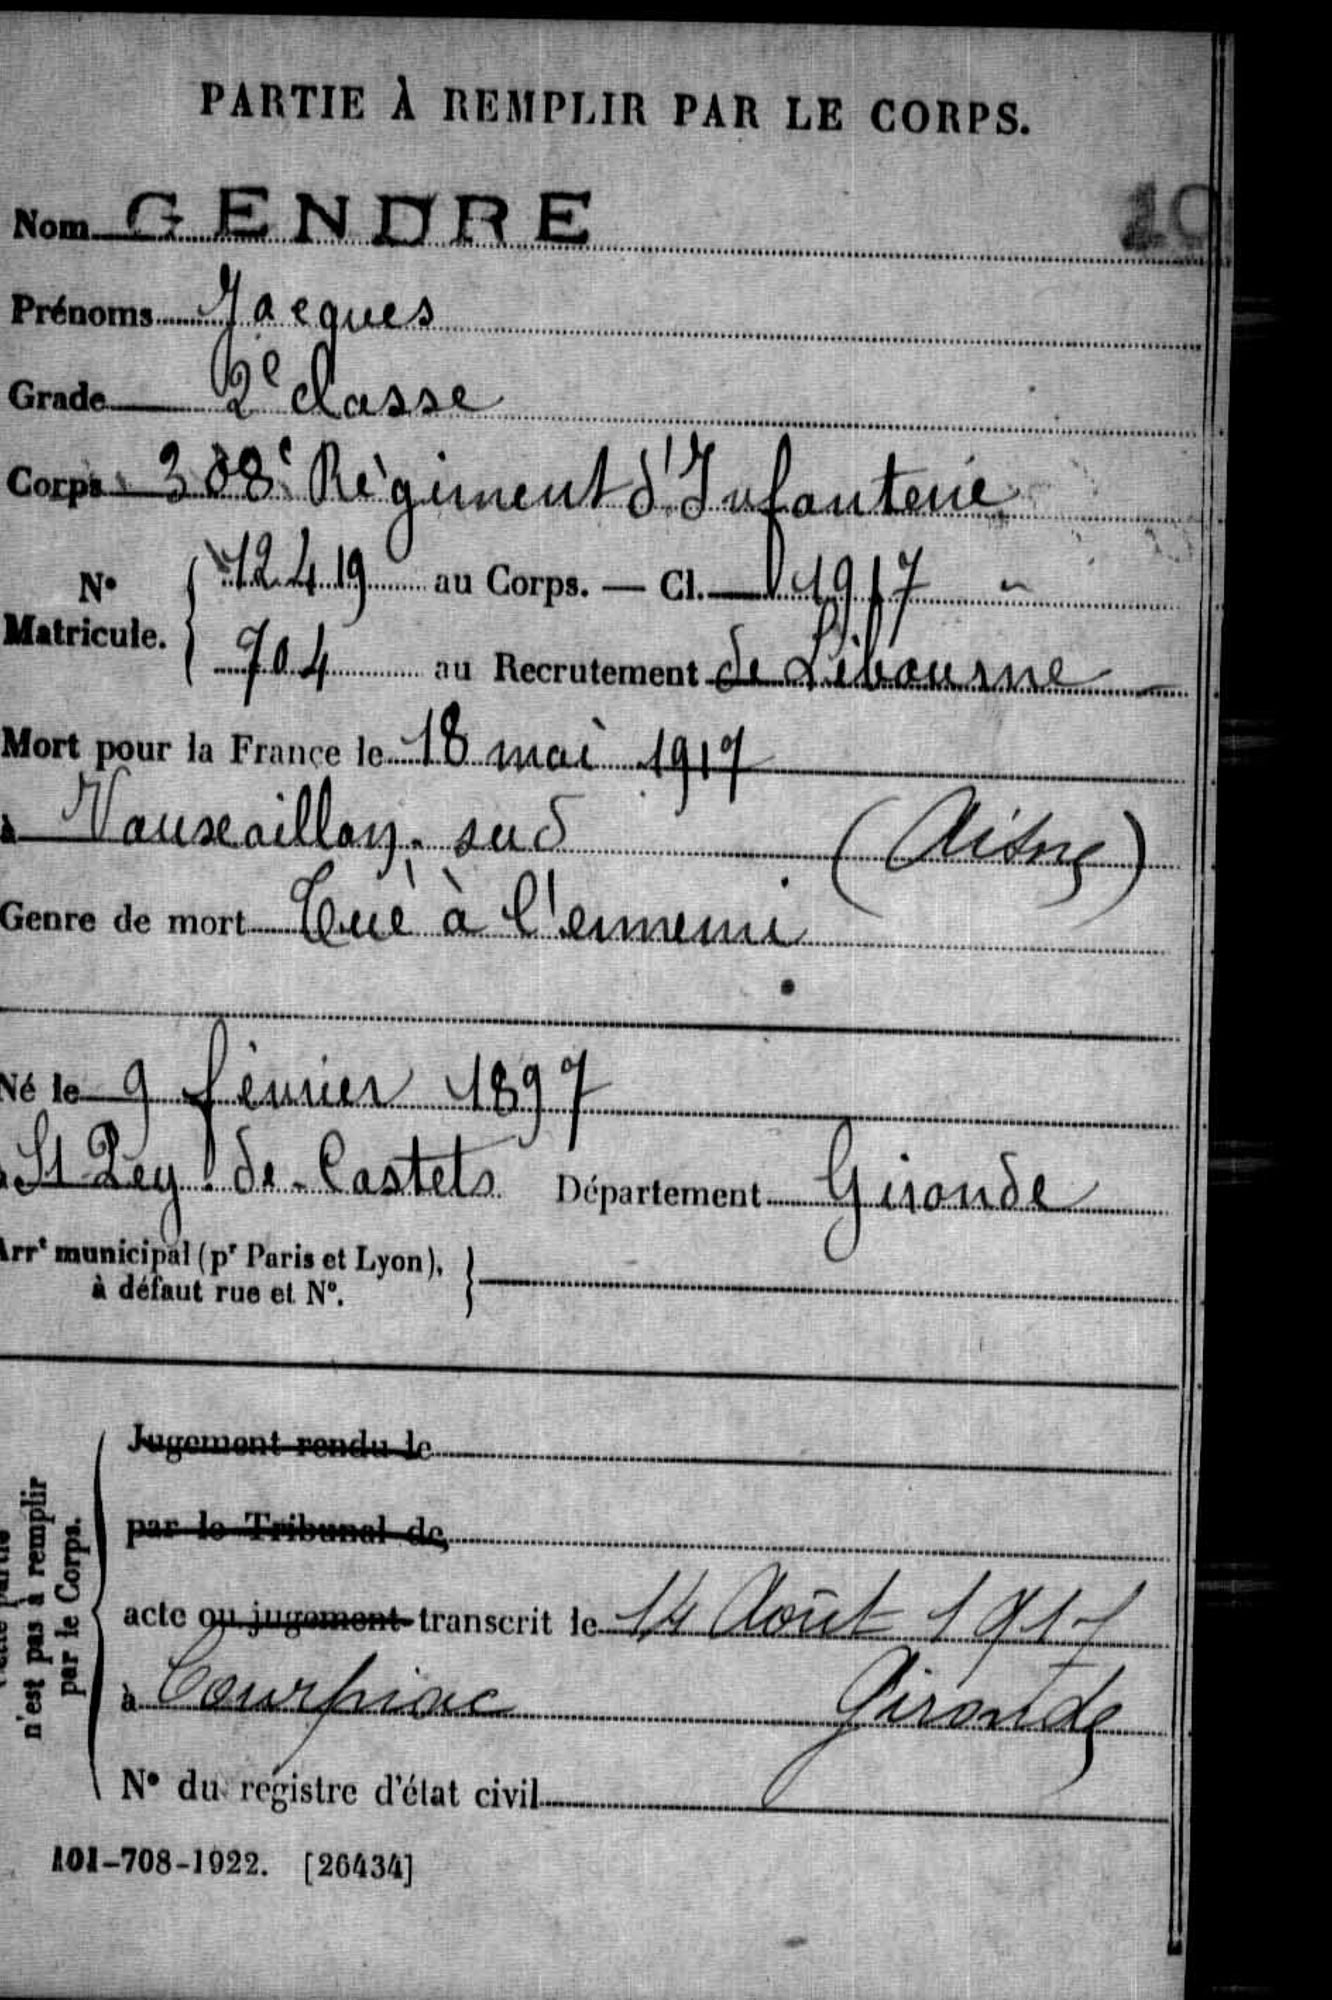 PARTIE À REMPLIR PAR LE CORPS.
10
Nom GENDRE
Prénoms Jacques
Grade 2e classe
Corps 308e Régiment d'Infanterie
N° Matricule. { 12419 au Corps. — Cl. 1917
704 au Recrutement de Libourne
Mort pour la France le 18 mai 1917
à Vauxaillon, sud (Aisne)
Genre de mort Tué à l'ennemi
Né le 9 février 1897
à St Pey-de-Castets Département Gironde
Arrt municipal (pr Paris et Lyon), à défaut rue et N°. }
n'est pas à remplir par le Corps.
Jugement rendu le
par le Tribunal de
acte ou jugement transcrit le 14 Août 1917
à Courpiac Gironde
N° du registre d'état civil
101-708-1922. [26434]